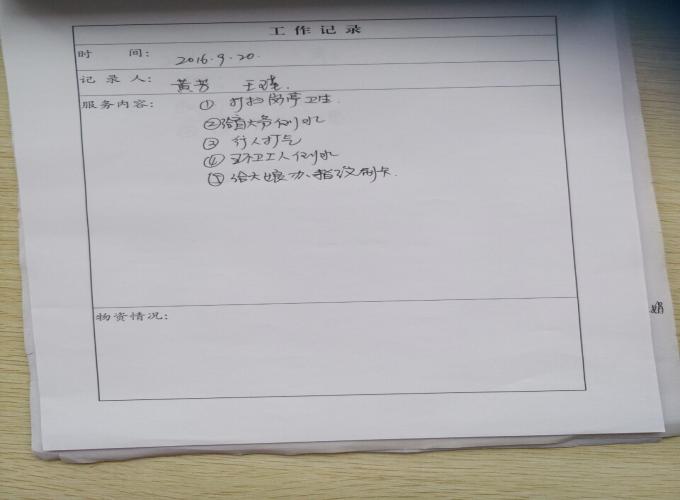 工作记录
时 间: 2016.9.20.
记录人: 黄芳 王璐.
服务内容: ① 打扫岗亭卫生.
② 给大爷倒水
③ 行人打气
④ 环卫工人倒水
⑤ 给大娘办指纹刷卡.
物资情况: